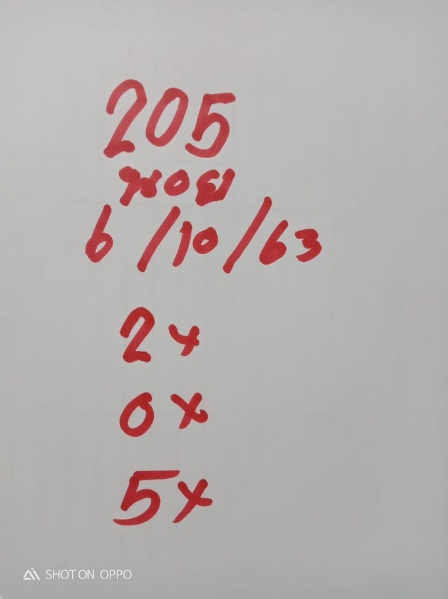 205
นอย
6/10/63
2x
0x
5x
SHOT ON OPPO